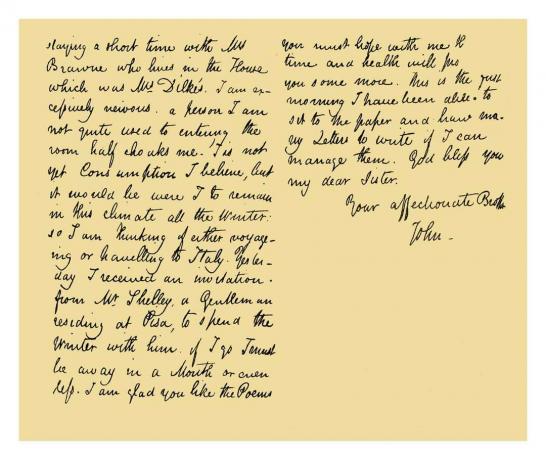 staying a short time with Mrs
Brawne who lives in the House
which was Mrs Dilke's. I am ex-
cessively nervous. a person I am
not quite used to entering the
room half choaks me. 'Tis not
yet Consumption I believe, but
it would be were I to remain
in this climate all the Winter:
so I am thinking of either voyage-
ing or travelling to Italy. Yester-
day I received an invitation.
from Mr Shelley, a Gentleman
residing at Pisa, to spend the
Winter with him. if I go I must
be away in a Month or even
less. I am glad you like the Poems
you must hope with me
time and health will
you some more. This is the first
morning I have been able to
sit to the paper and have ma-
ny Letters to write if I can
manage them. God bless you
my dear Sister.
Your affectionate Broth
John-